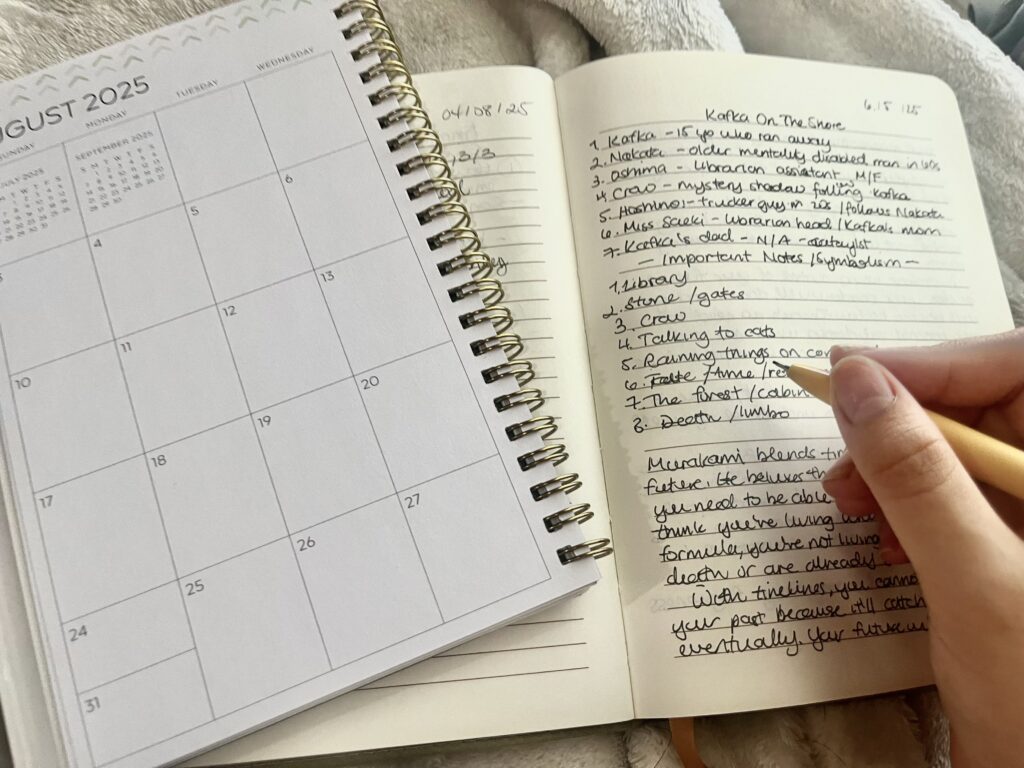 UGUST 2025
UNDAY
MONDAY
TUESDAY
WEDNESDAY
JULY 2025
SEPTEMBER 2025
S M T W T F S
3
4
5
6
10
11
12
13
17
18
19
20
24
25
26
27
31
04/08/25
, 3/3
6.15 /25
Kafka On The Shore
1. Kafka - 15 yo who ran away
2. Nakata - older mentality disabled man in 60s
3. Oshima - librarian assistant M/F
4. Crow - mystery shadow Kafka
5. Hoshino - trucker guy in 20s /follows Nakata
6. Miss Saeki - librarian head /Kafka's mom
7. Kafka's dad - N/A -
- Important Notes /Symbolism -
1. Library
2. Stone /gates
3. Crow
4. Talking to cats
5. Raining things on
6. /time /re
7. The forest /cabin
8. Death /limbo
Murakami blends
future. He believes
you need to be able
think you're living
formula, you're not living
death or are already
With timelines, you
your past because it'll catch
eventually. Your future